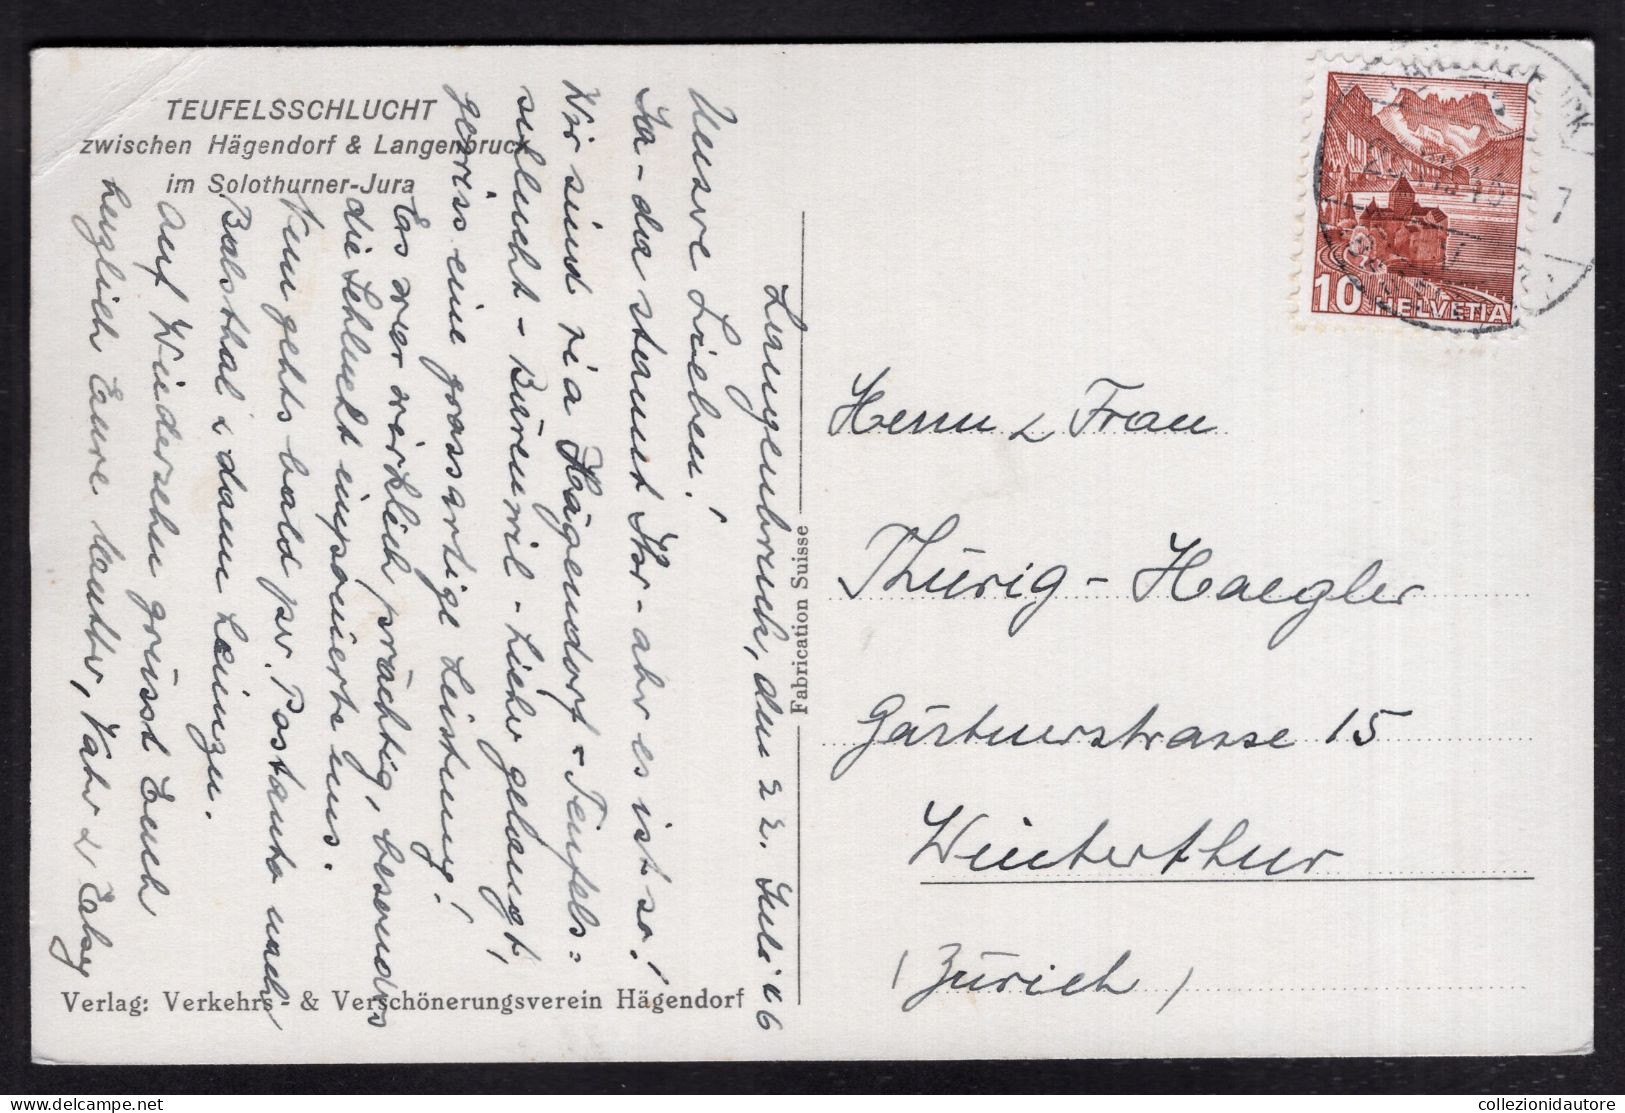 TEUFELSSCHLUCHT
zwischen Hägendorf & Langenbruck
im Solothurner-Jura
Langenbruck, den 22. Juli 46
Unsre Lieben!
Ja - da staunt Ihr - aber es ist so!
Wir sind via Hägendorf - Teufels=
schlucht - Bärenwil - hieher gelangt,
gewiss eine grossartige Leistung!
Es war wirklich prächtig, besonders
die Schlucht imponierte uns.
Nun gehts bald per Postauto nach
Balsthal & dann heinzu.
Auf Wiedersehn grüsst Euch
herzlich Eure Mutter, Vater & Elsy
Verlag: Verkehrs- & Verschönerungsverein Hägendorf
Fabrication Suisse
10 HELVETIA
7
Herrn & Frau
Thürig - Haegler
Gärtnerstrasse 15
Winterthur
(Zürich)
collezionidautore